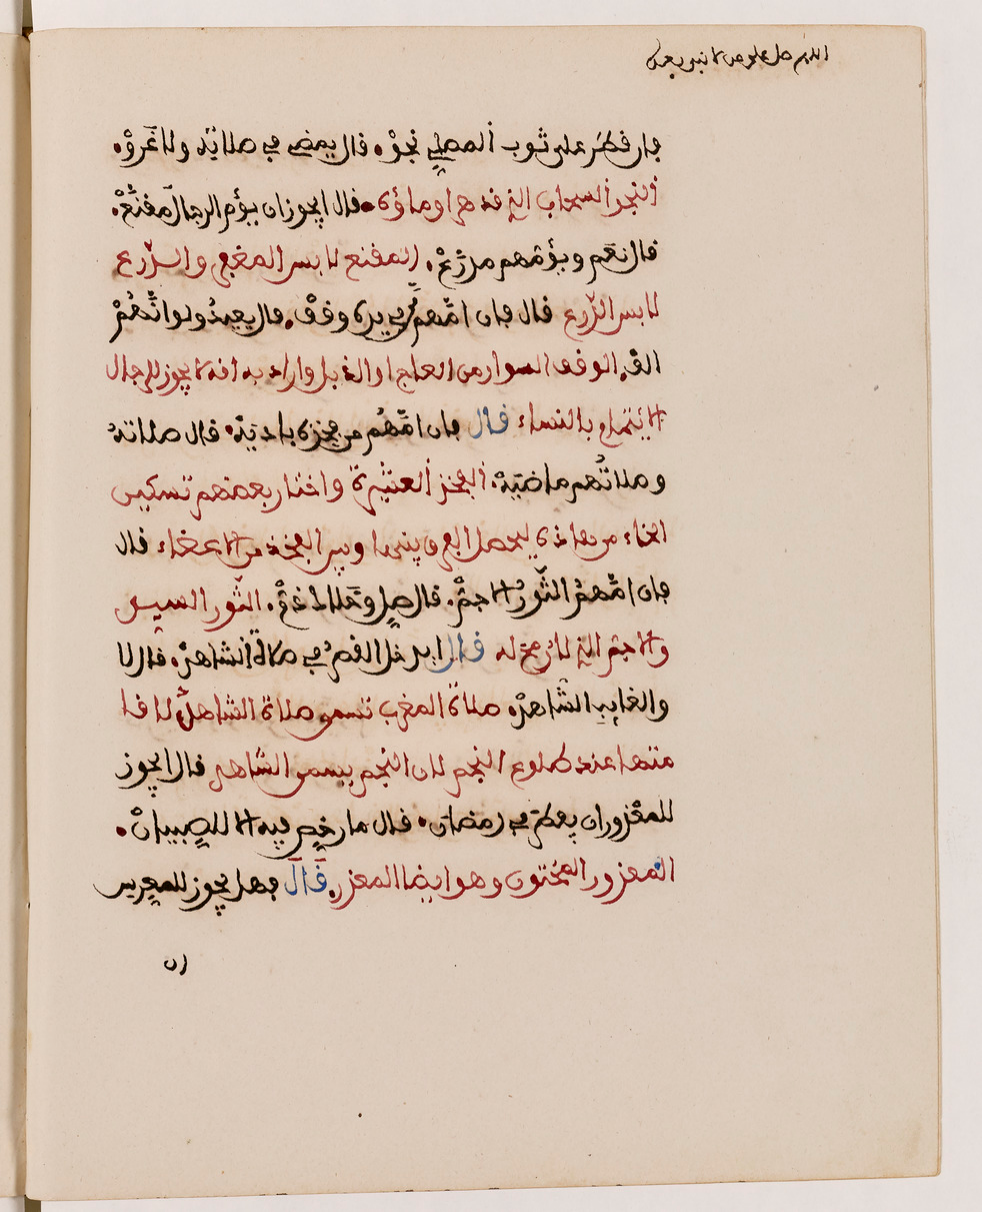 اللهم صل على من لا نبي بعده
فإن فطر على ثوب المصلي نجو. قال يمضي في صلاته ولا غرو.
النجو السحاب الذي قد هراو ماؤه. قال ايجوز ان يؤم الرجال مقنع.
قال نعم ويؤمهم مدرع. المقنع لابس المغفر والدرع
لابس الدرع قال فإن امهم من في يده وقف. قال يعيدون ولو انهم
الف. الوقف السوار من العاج او الذبل واراد به انه لا يجوز للرجال
الايتمام بالنساء قال فإن امهم من فخذه بادية. قال صلاته
وصلاتهم ماضية. الفخذ العشيرة واختار بعضهم تسكين
الخاء من هاذه ليحصل الفرق بينها وبين الفخذ من الاعضاء قال
فإن امهم الثور الاجم. قال صل وخلاك ذم. الثور السيد
والاجم الذي لا رمح له قال ايدخل القصر في صلاة الشاهد. قال لا
والغايب الشاهد. صلاة المغرب تسمى صلاة الشاهد لاقا
متها عند طلوع النجم لان النجم يسمى الشاهد قال ايجوز
للمعذور ان يفطر في رمضان. قال ما رخص فيه الا للصبيان.
المعذور المختون وهو ايضا المعذر. قال فهل يجوز للمعرس
ان